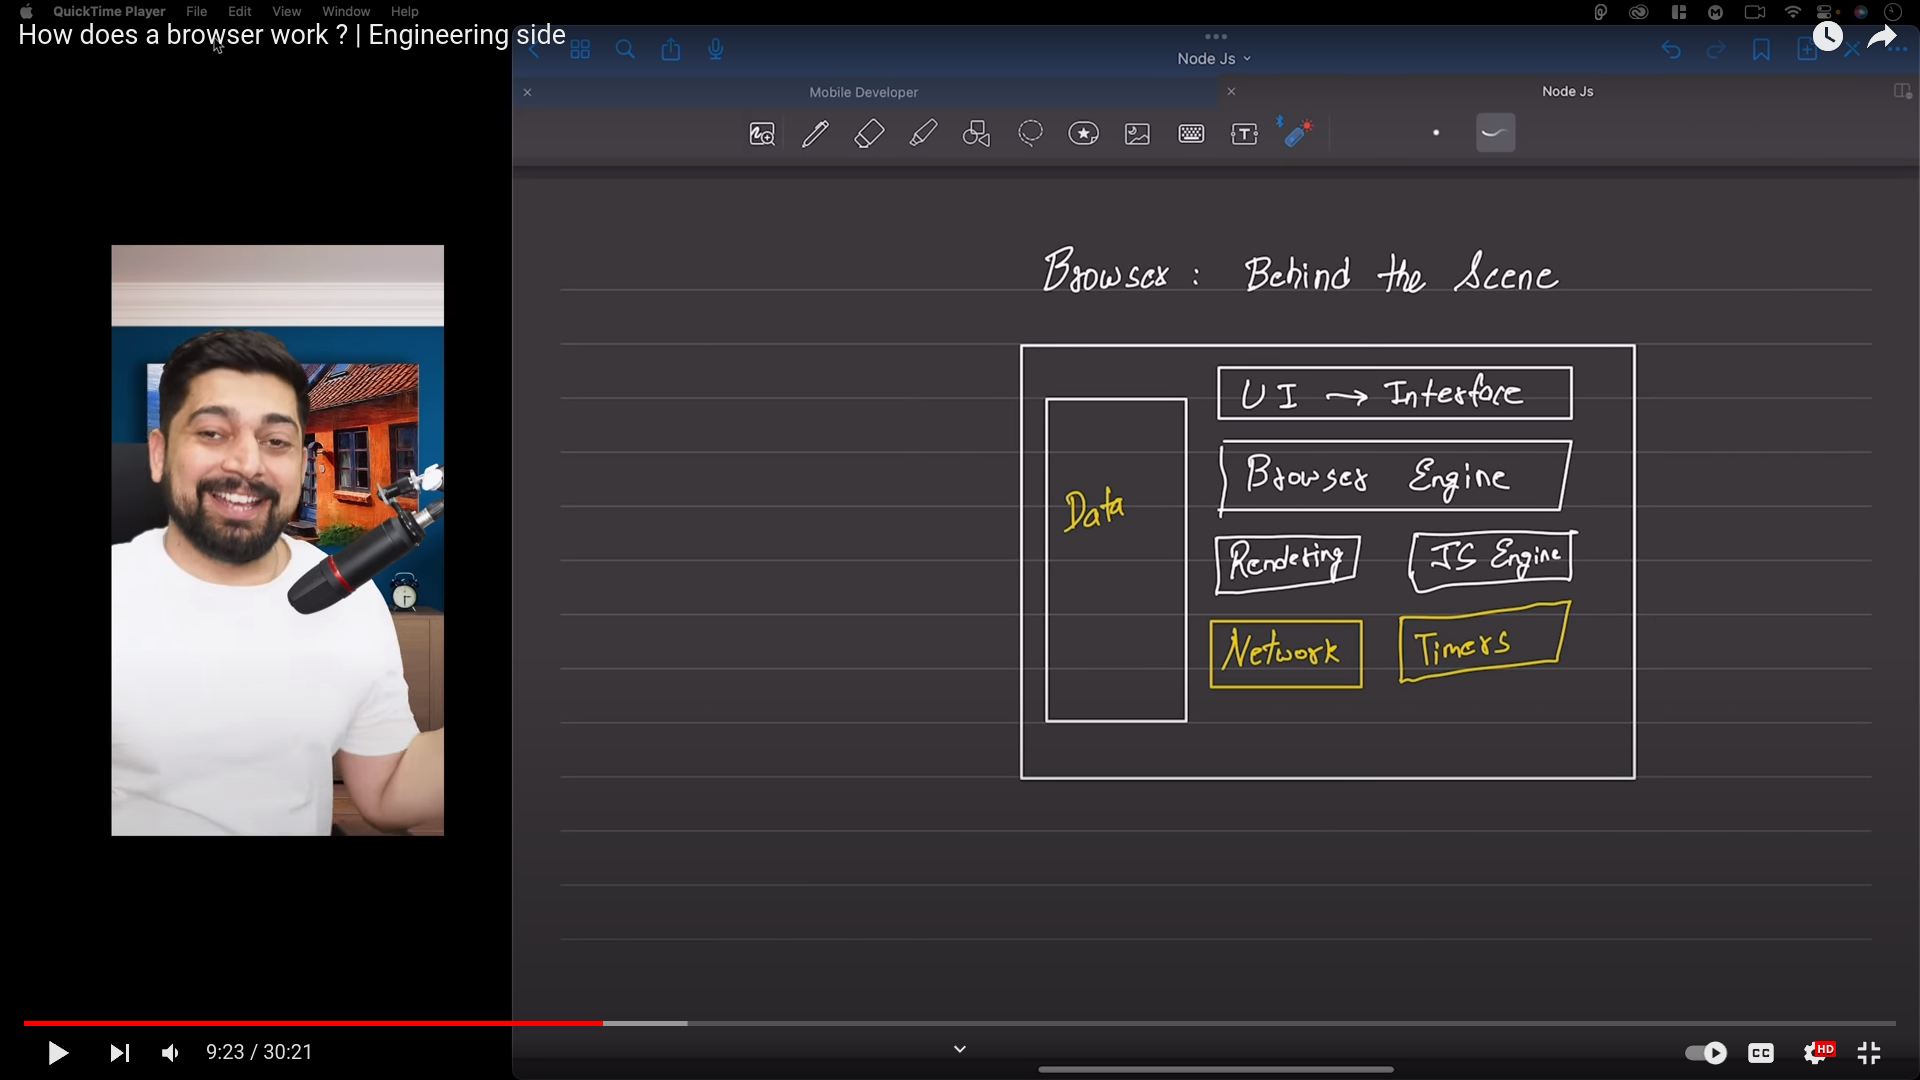 QuickTime Player File Edit View Window Help
How does a browser work ? | Engineering side
Node Js
Mobile Developer
Node Js
T
Browser : Behind the Scene
UI → Interface
Browser Engine
Data
Rendering
JS Engine
Network
Timers
9:23 / 30:21
CC
HD